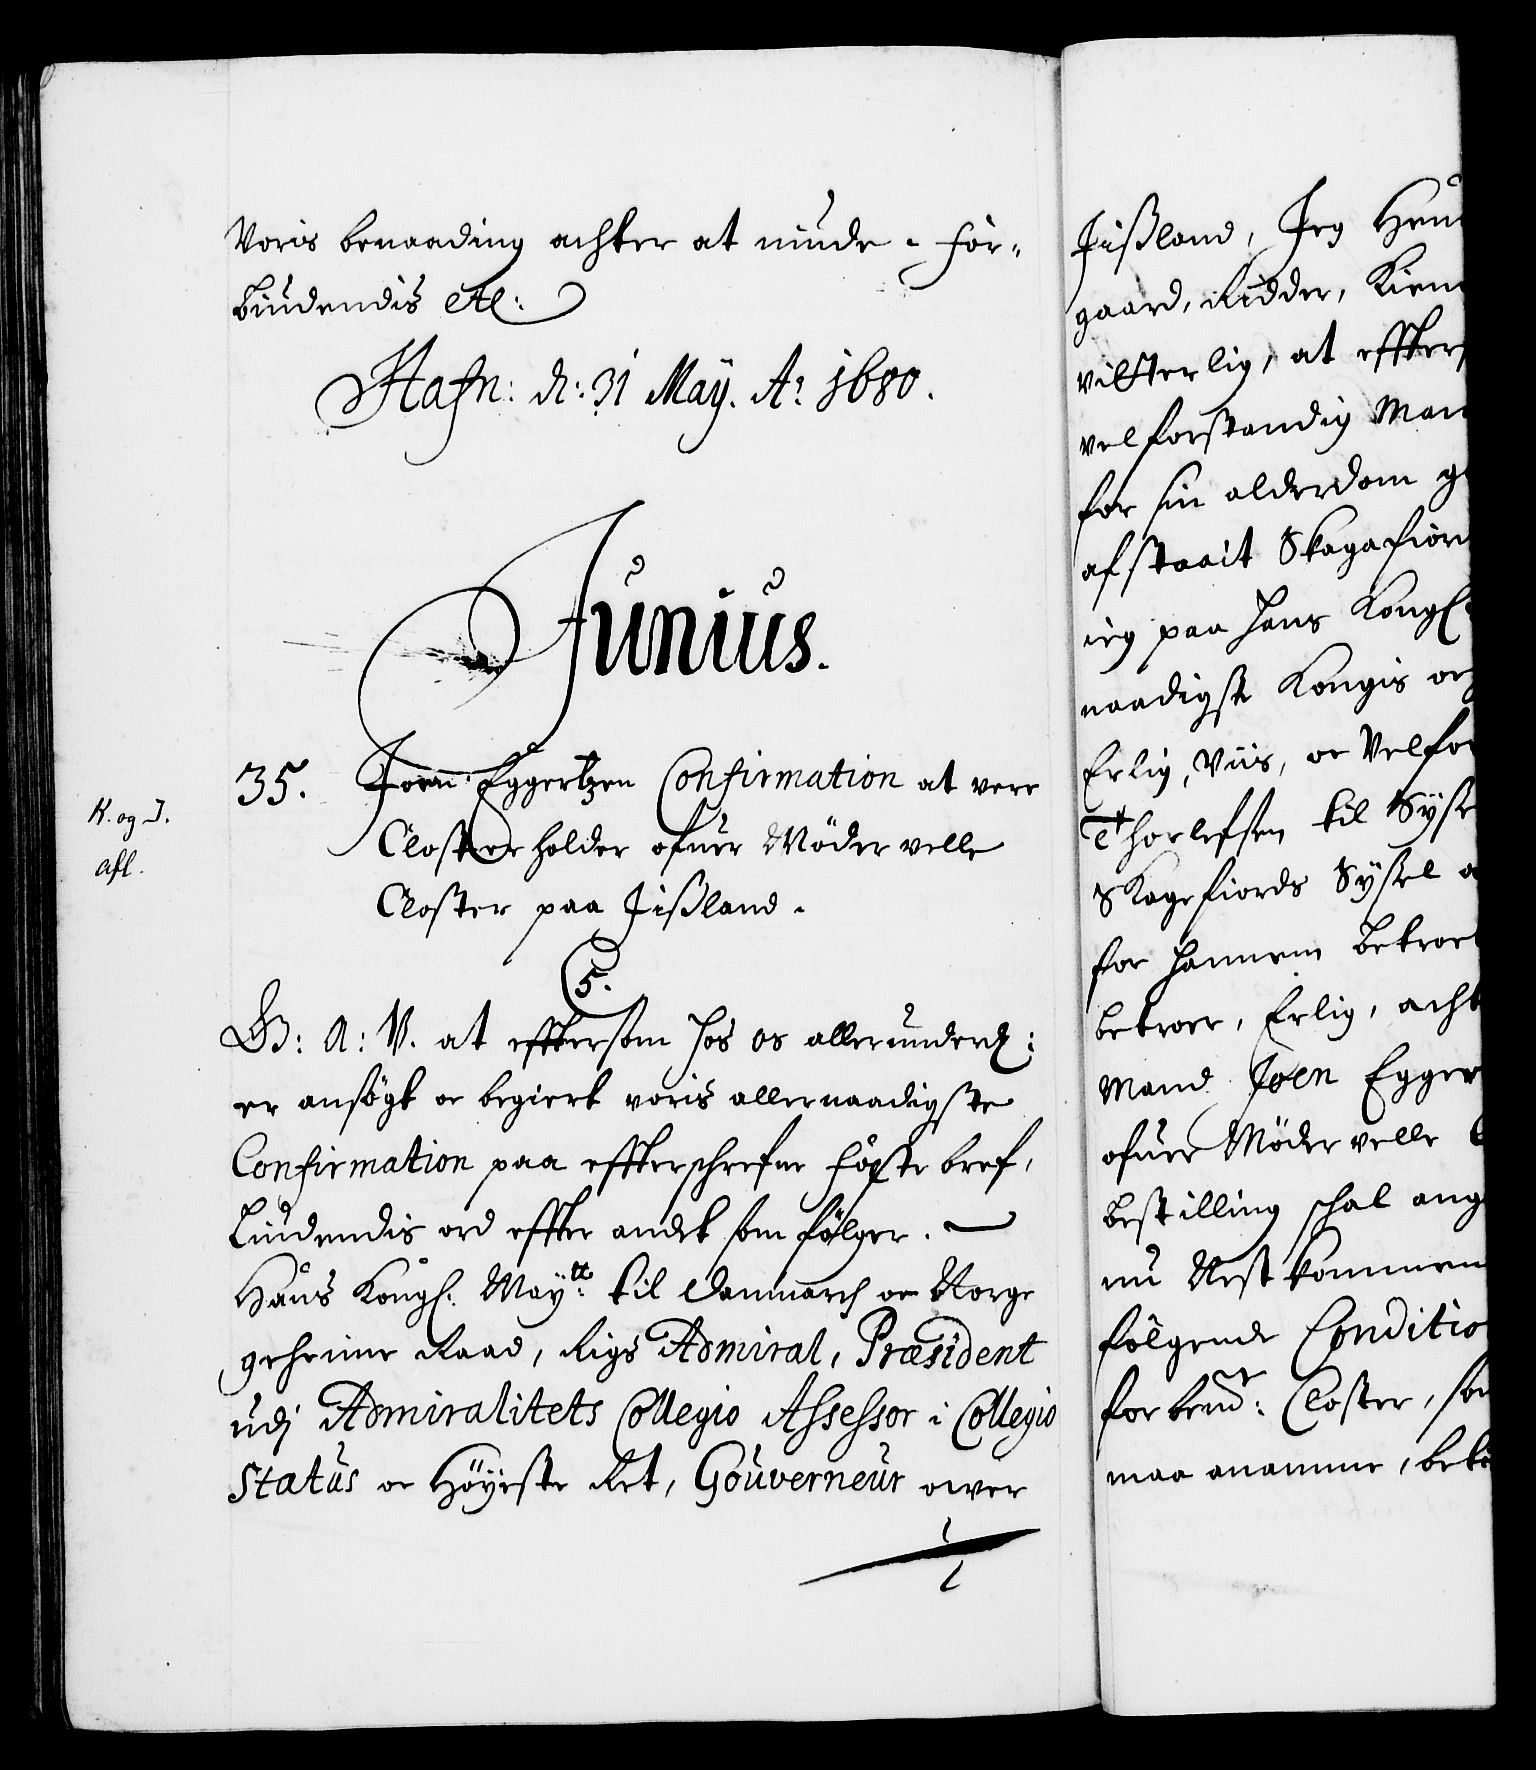 Voris benaading achter at niude. For-
biudendis etc:
Hafn: d: 31 Maÿ. Ao 1680.
Junius.
35. Joen Eggertzen Confirmation at vere
Closterholder ofuer Möder velle
Closter paa Jißland.
K. og I.
afl.
C5.
G: A: V. at effter som hos os allerunderd:
er ansögt oc begiert voris allernaadigste
Confirmation paa effterschrefne fæste bref,
liudendis ord effter andet som fölger.
Hans Kongl: Maÿ:tt til Danmarch oc Norge
geheime Raad, Rigs Admiral, Præsident
udj Admiralitets Collegio Assessor i Collegio
Status oc Höÿeste Ret, Gouverneur ower
Jißland, Jeg Hen
gaard, Ridder, Kien
vitterlig, at effters
velforstandig Man
for sin alderdom g
afstaait Skagafior
ieg paa Hans Kongl:
naadigste Kongis oc
Erlig, Viis, oc Velfor
Thorlefsen til Sÿse
Skagefiords Sÿsel a
for hannem betroe
betroer, Erlig, acht
Mand Joen Egger
ofuer Möder velle C
bestilling schal ang
nu Nest kommen
fölgende Conditio
forbemt: Closter, so
maa anamme, bek